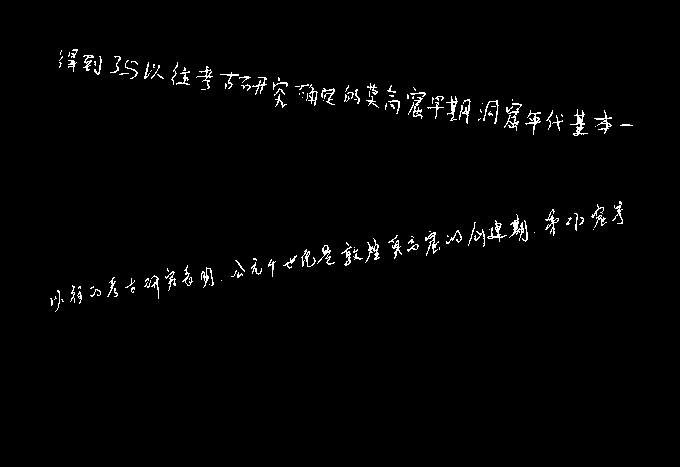 得到了与以往考古研究确定的莫高窟早期洞窟年代基本一
以往的考古研究表明,公元4世纪是敦煌莫高窟的创建期,第268窟等